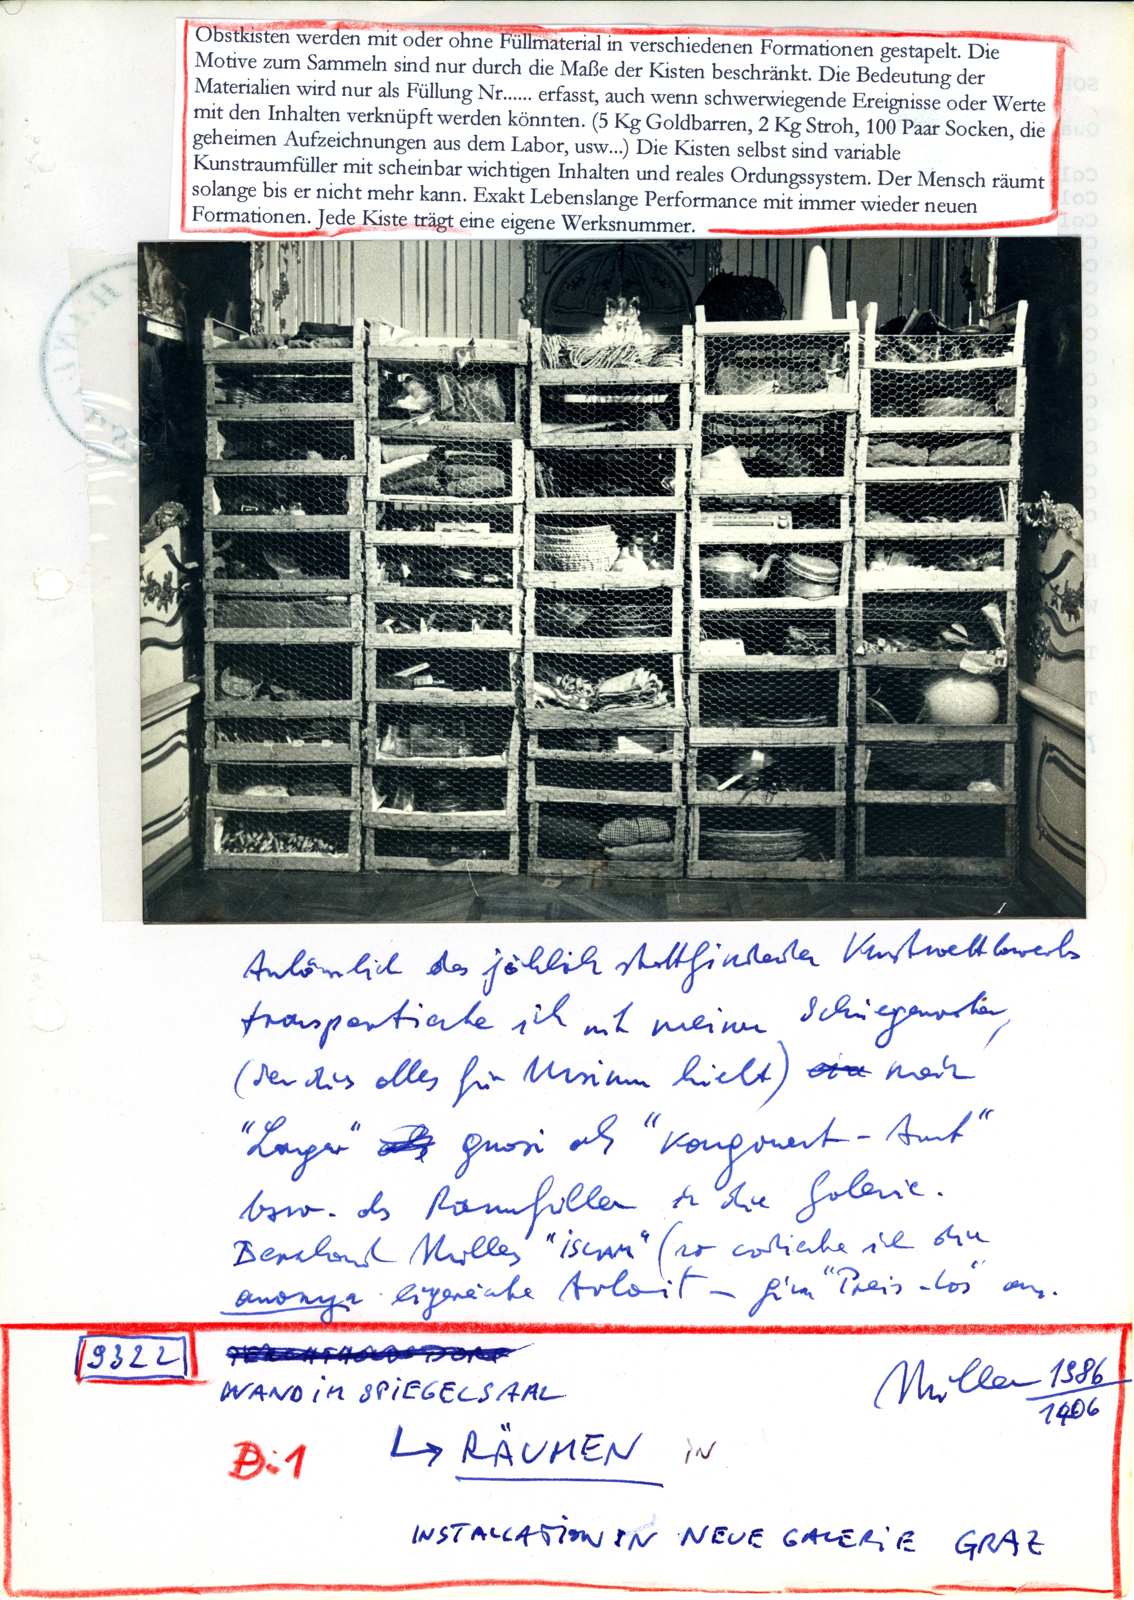 Obstkisten werden mit oder ohne Füllmaterial in verschiedenen Formationen gestapelt. Die
Motive zum Sammeln sind nur durch die Maße der Kisten beschränkt. Die Bedeutung der
Materialien wird nur als Füllung Nr...... erfasst, auch wenn schwerwiegende Ereignisse oder Werte
mit den Inhalten verknüpft werden könnten. (5 Kg Goldbarren, 2 Kg Stroh, 100 Paar Socken, die
geheimen Aufzeichnungen aus dem Labor, usw...) Die Kisten selbst sind variable
Kunstraumfüller mit scheinbar wichtigen Inhalten und reales Ordungssystem. Der Mensch räumt
solange bis er nicht mehr kann. Exakt Lebenslange Performance mit immer wieder neuen
Formationen. Jede Kiste trägt eine eigene Werksnummer.
Anlässlich des jährlich stattfindenden Kunstwettbewerbs
transportierte ich mit meinem Schwiegervater,
(der dies alles für Unsinn hielt) mein
"Lager" quasi als "Kongruent-Amt"
bzw. als Raumfüller in die Galerie.
Bernhard Müller (so ich die
anonym eingereichte Arbeit - "Preis-los" an.
9322
WAND IM SPIEGELSAAL
Müller 1986
1406
B:1
↳ RÄUMEN IN
INSTALLATION IN NEUE GALERIE GRAZ